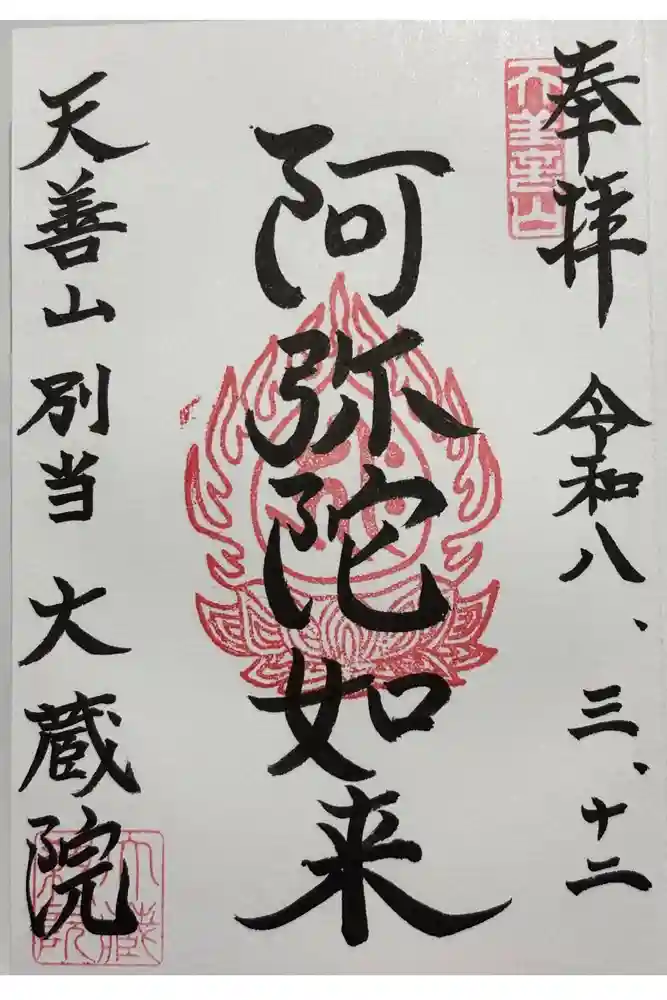 奉拝 令和八、三、十二
天善山
阿弥陀如来
天善山別当 大蔵院
大蔵院